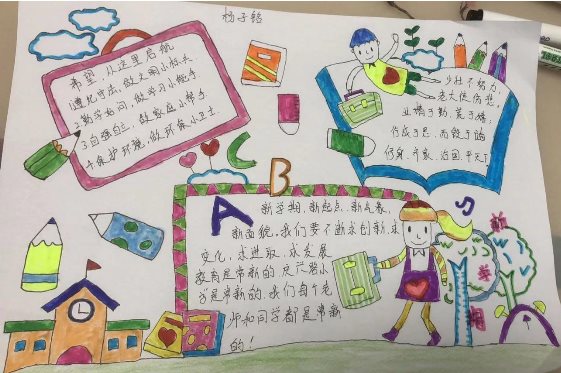 杨子铭
希望,从这里启航
1遵纪守法,做文明小标兵
2勤学好问,做学习小能手
3自强自立,做家庭小帮手
4保护环境,做环保小卫士.
少壮不努力,
老大徒伤悲,
业精于勤,荒于嬉;
行成于思,而毁于随
修身,齐家,治国,平天下
A B C
新学期,新起点,新气象,
新面貌,我们要不断求创新,求
变化,求进取,求发展
教育是常新的
是常新的.我们每个老
师和同学都是常新
的!
新学期